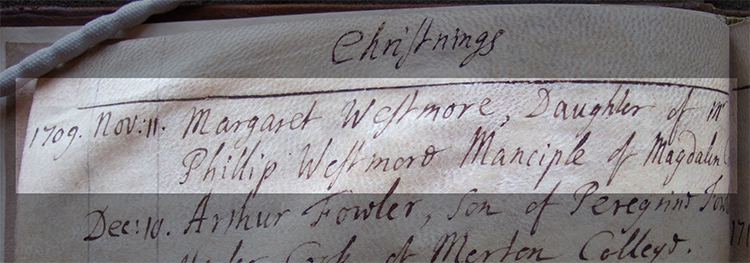 Christnings
1709. Nov: 11. Margaret Westmore, Daughter of Mr
Phillip Westmore Manciple of Magdalen
Dec: 10. Arthur Fowler, Son of Peregrine
Under Cook of Merton Colledge.